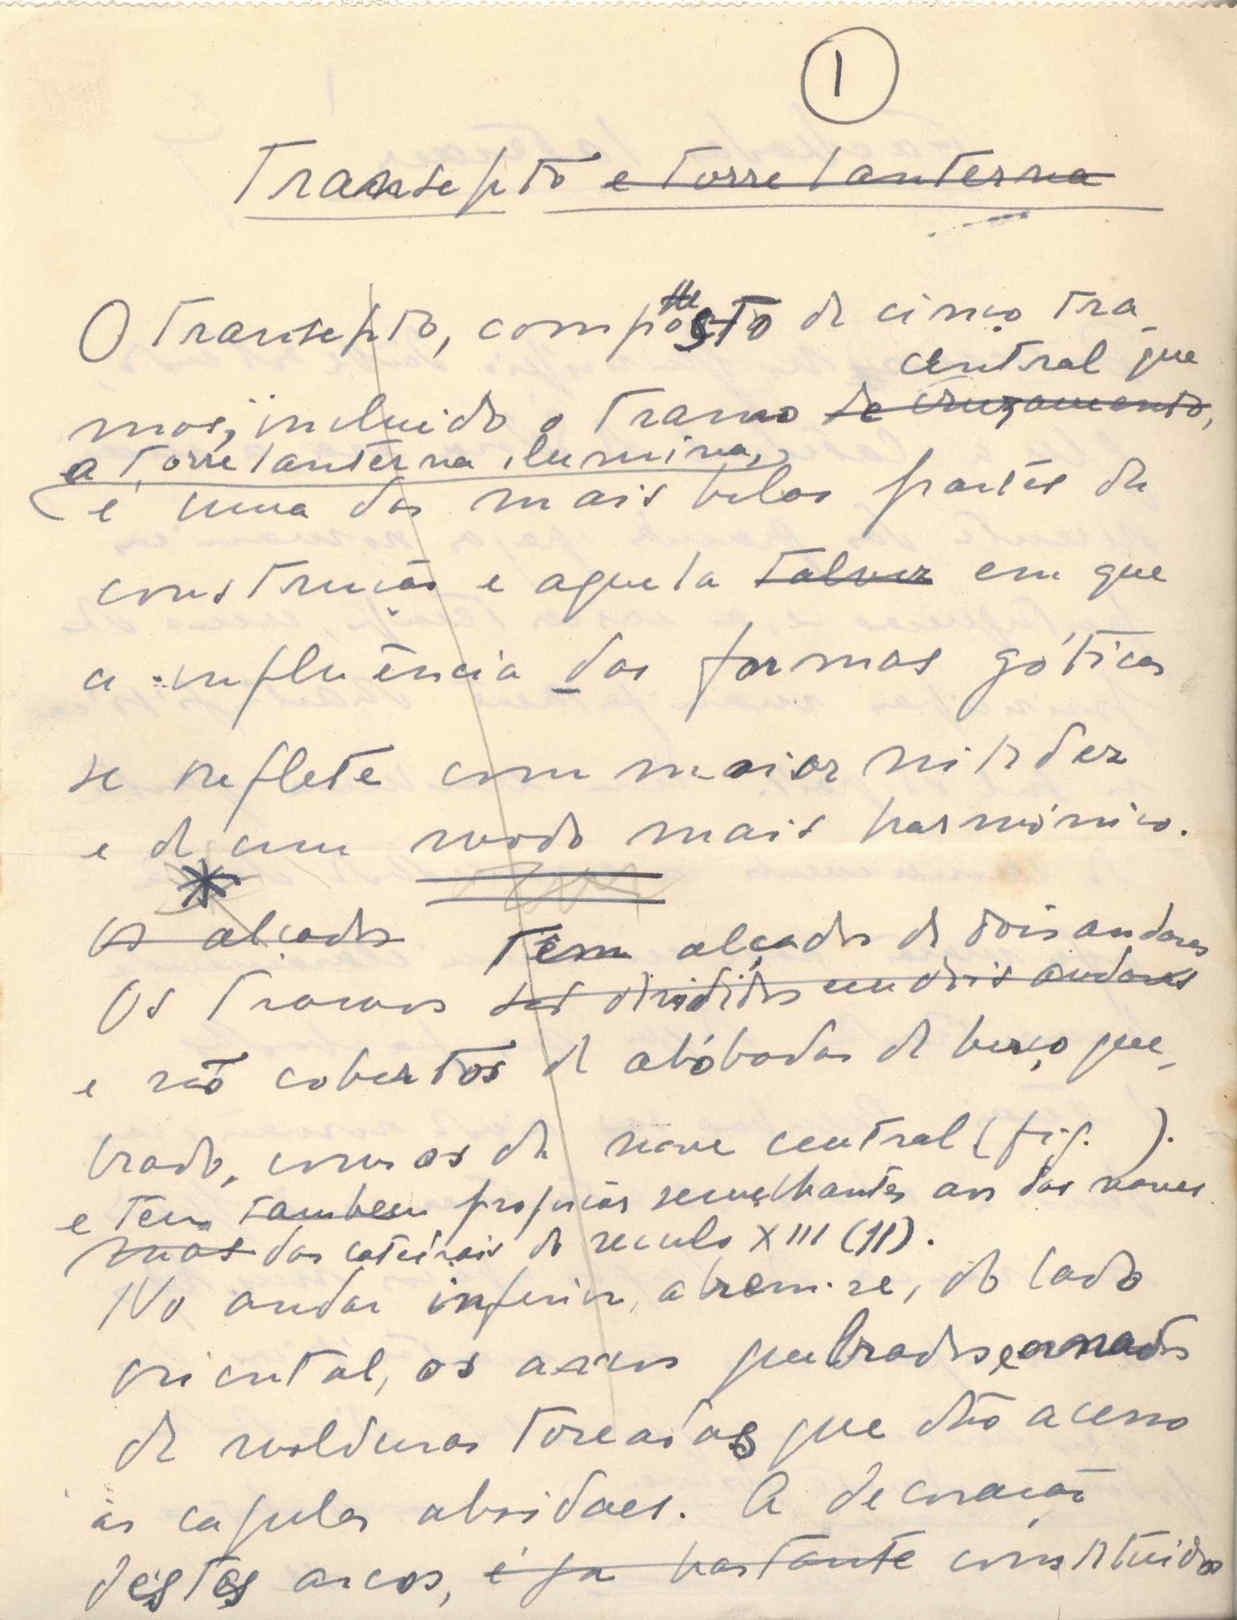 1
Transepto e torre lanterna
O transepto, composto de cinco tra-
central que
mos, incluido o tramo de cruzamento,
a torre lanterna ilumina,
é uma das mais belas partes da
construção e aquela talvez em que
a influência das formas góticas
se reflete com maior nitidez
e de um modo mais harmónico.
*
os alçados Têm alçados de dois andares
Os tramos são divididos em dois andares
e são cobertos de abóbadas de berço que-
brado, como as da nave central (fig. ).
e tem tambem semelhantes as das naves
mas das catedrais do seculo XIII (11).
No andar inferior, abrem-se, do lado
oriental, os arcos quebrados, ornados
de molduras toreadas que dão acesso
às capelas absidaes. A decoração
destes arcos, é já bastante constituida